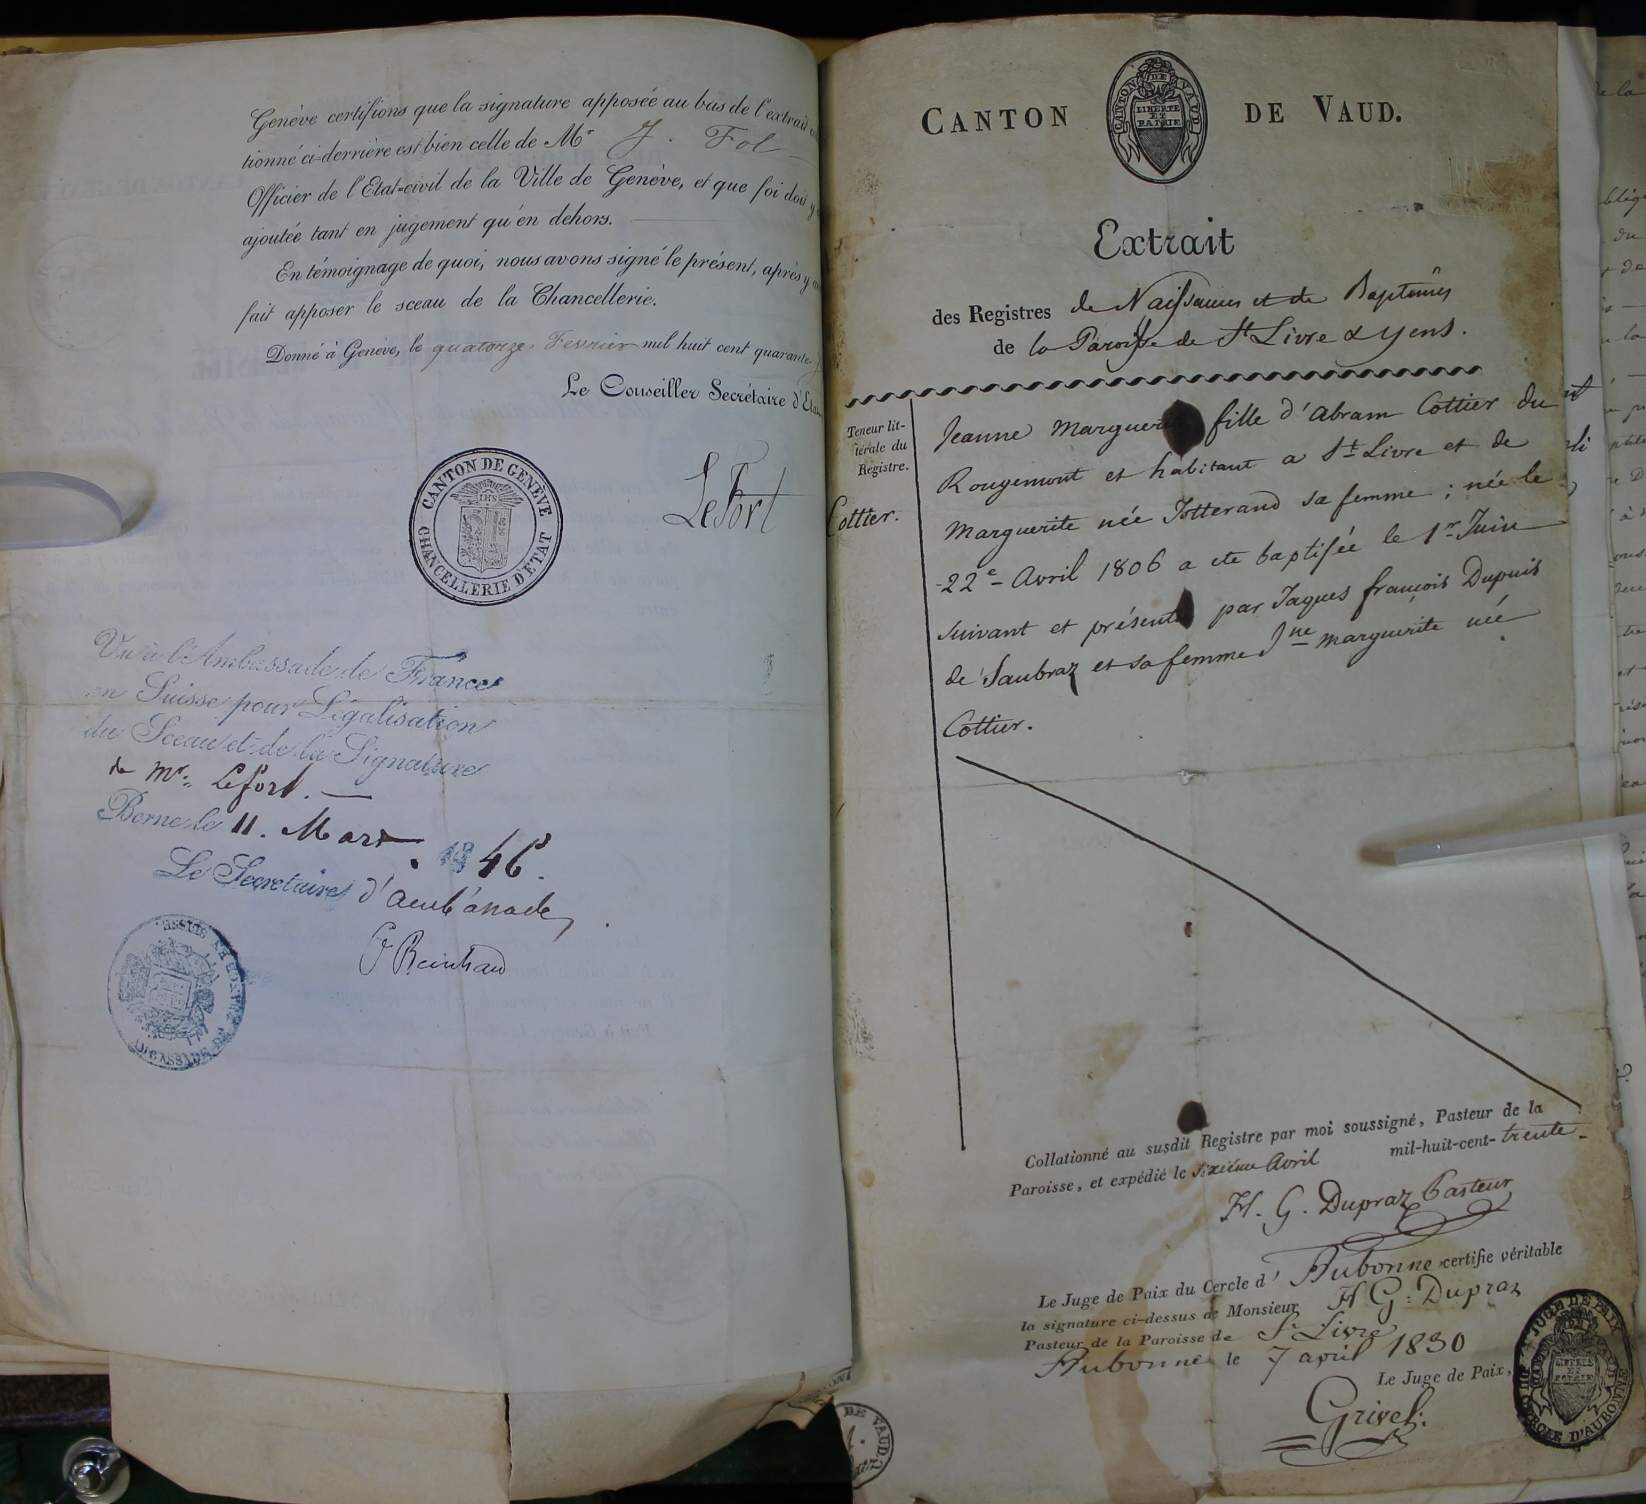 Genève certifions que la signature apposée au bas de l'extrait
tionné ci-derrière est bien celle de Mr J. Fol
Officier de l'Etat-civil de la Ville de Genève, et que foi doit y
ajoutée tant en jugement qu'en dehors.
En témoignage de quoi, nous avons signé le présent, après y
fait apposer le sceau de la Chancellerie.
Donné à Genève, le quatorze Fevrier mil huit cent quarante
Le Conseiller Secrétaire d'Etat
CANTON DE GENÈVE
CHANCELLERIE D'ETAT
IHS
LeFort
Vu à l'Ambassade de France
en Suisse pour Légalisation
du Sceau et de la Signature
de Mr. Lefort.
Berne le 11. Mars 1846.
Le Secretaire d'ambassade,
AMBASSADE DE
CANTON DE VAUD.
CANTON DE VAUD
LIBERTE
ET
PATRIE
Extrait
des Registres de Naissances et de Baptêmes
de la Paroisse de St Livre & yens.
Teneur lit-
térale du
Registre.
Cottier.
Jeanne Marguer fille d'Abram Cottier du
Rougemont et habitant a St Livre et de
Marguerite née Jotterand sa femme ; née le
22e Avril 1806 a ete baptisée le 1r Juin
suivant et présenté par Jaques françois Dupuis
de Saubraz et sa femme Jne marguerite née
Cottier.
Collationné au susdit Registre par moi soussigné, Pasteur de la
Paroisse, et expédié le sixième Avril mil-huit-cent-trente.
H. G. Dupraz Pasteur
Le Juge de Paix du Cercle d'Aubonne certifie véritable
la signature ci-dessus de Monsieur H G: Dupraz
Pasteur de la Paroisse de St Livre
Aubonne le 7 avril 1830
Le Juge de Paix,
Grivel.
JUGE DE PAIX
DU CERCLE D'AUBONNE
LIBERTE
ET
PATRIE
DE VAUD